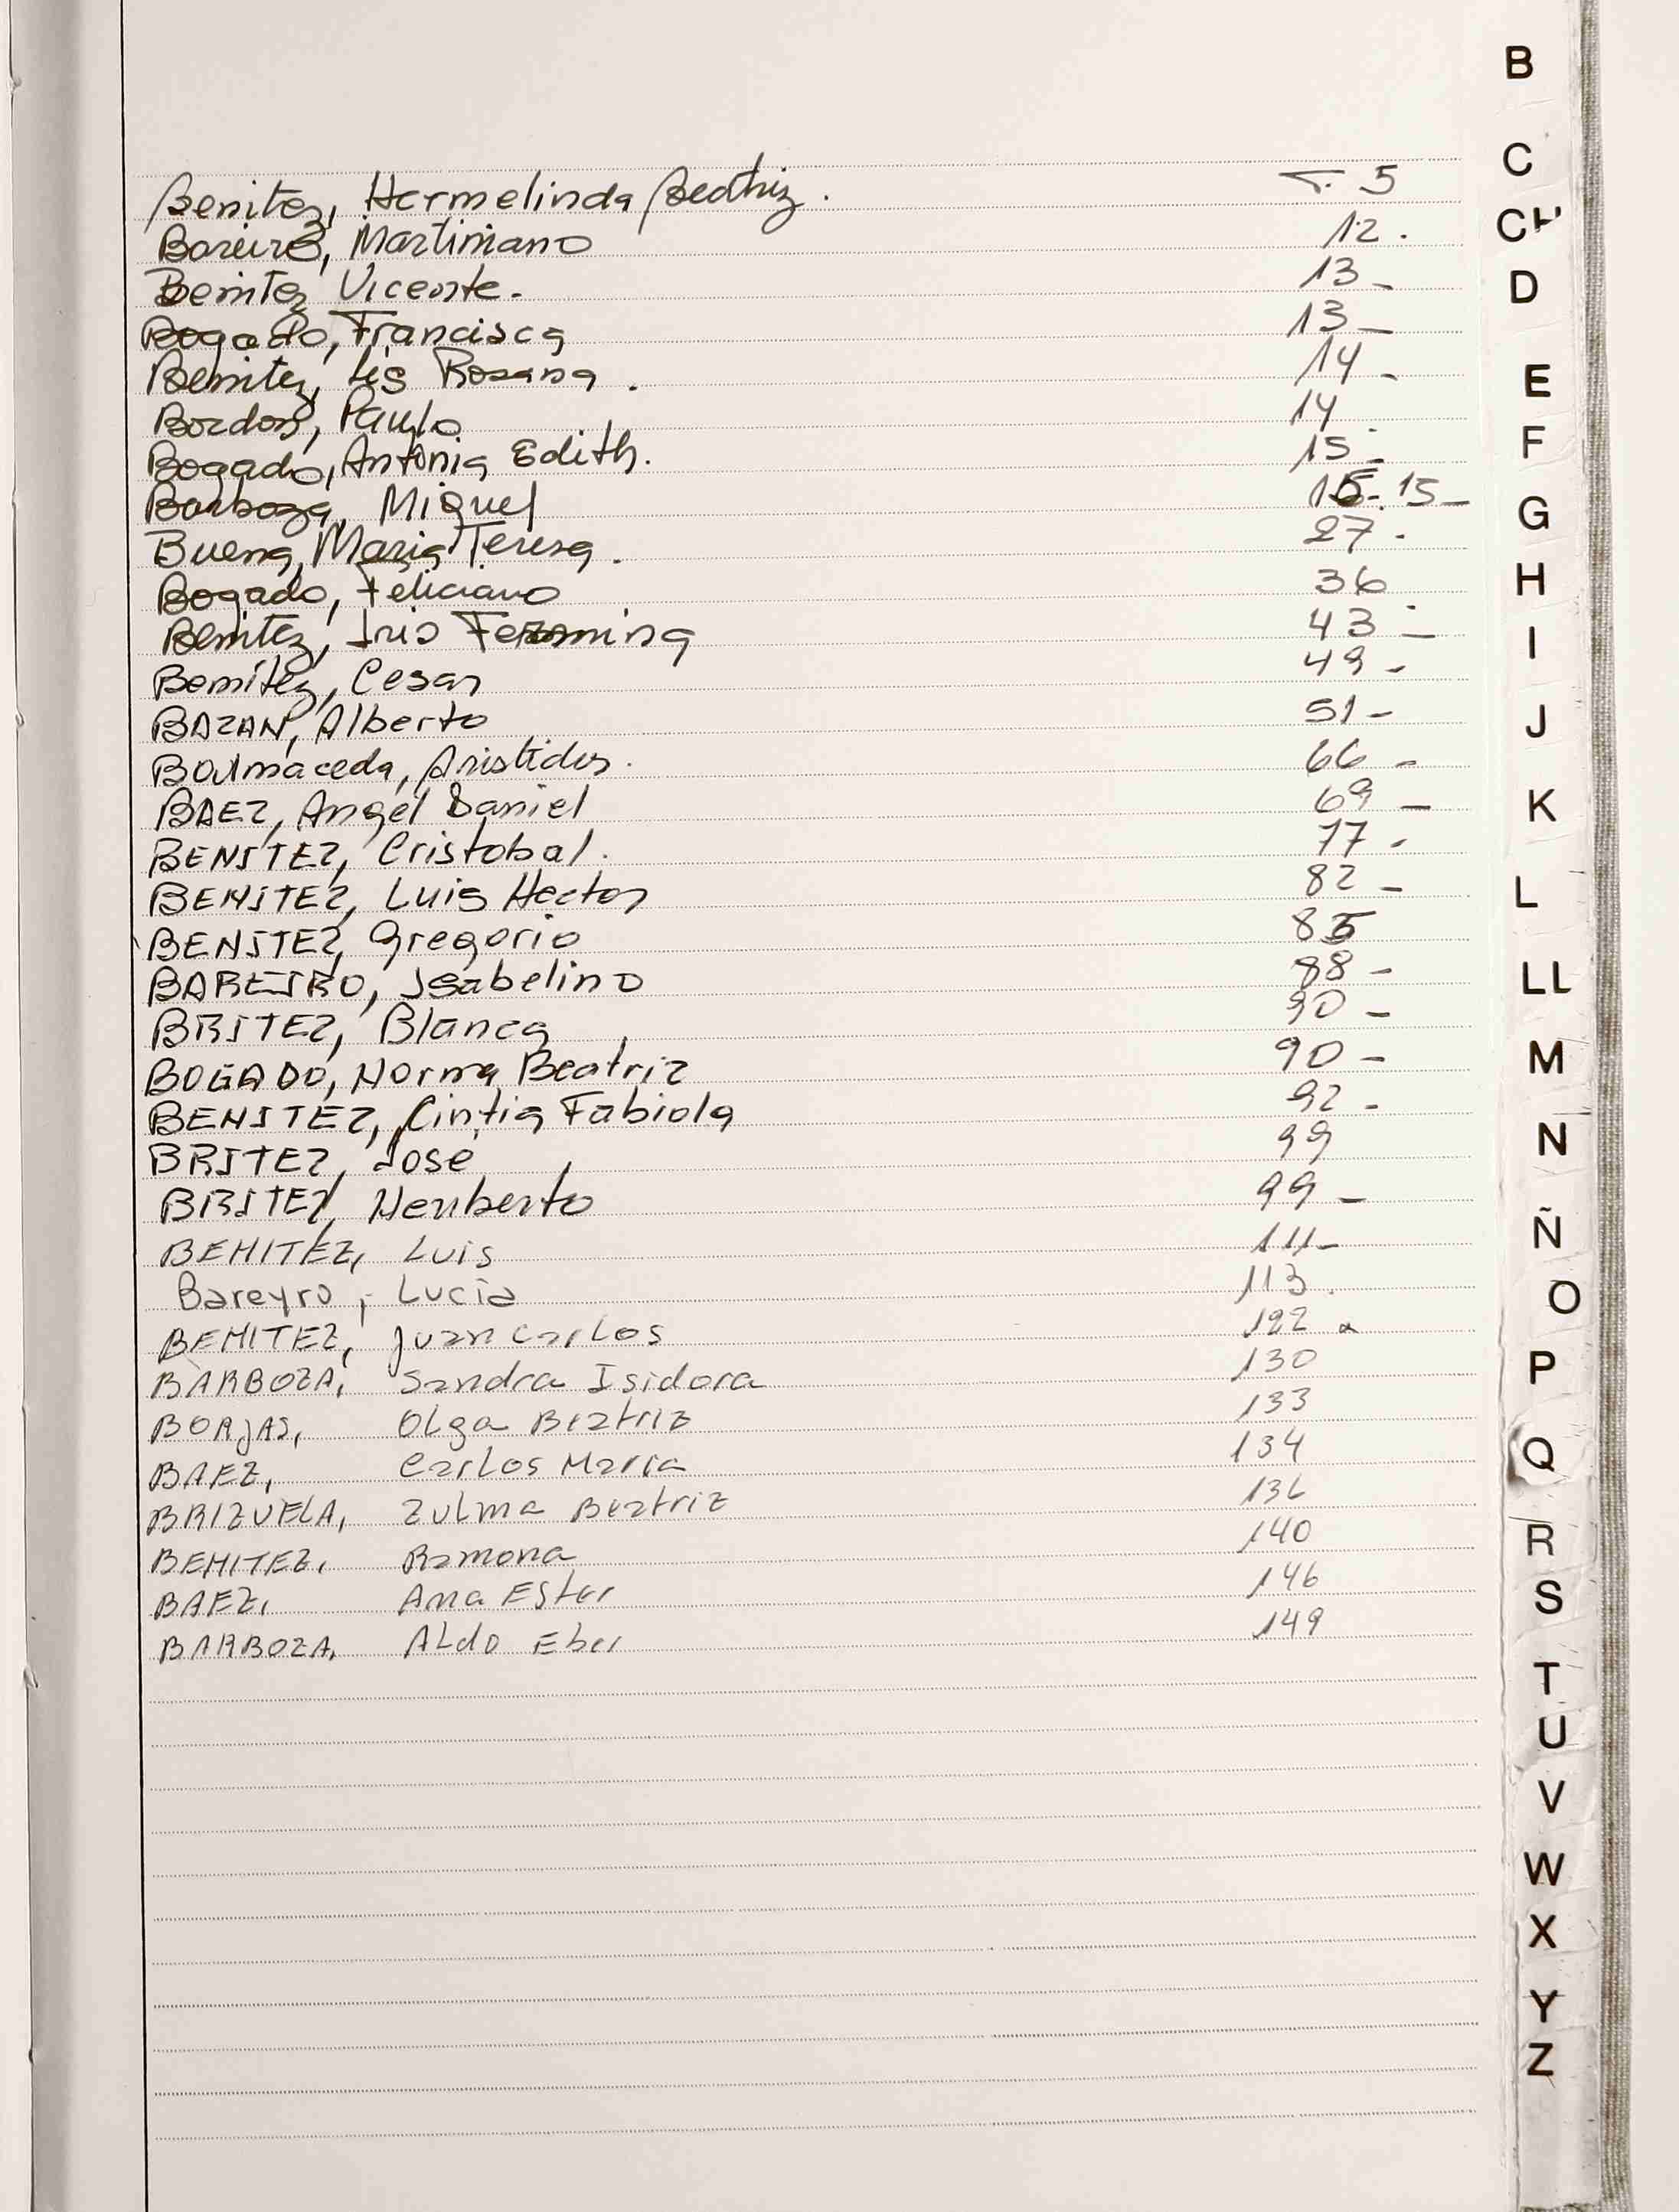 B
C
CH
D
E
F
G
H
I
J
K
L
LL
M
N
Ñ
O
P
Q
R
S
T
U
V
W
X
Y
Z
Benitez, Hermelinda Beatriz. T. 5
Bareiro, Martiniano 12.
Benitez Vicente. 13 -
Bogado, Francisca 13 -
Benitez, Lis Rosana. 14 -
Bordon, Paulo 14
Bogado, Antonia Edith. 15 -
Barboza, Miguel 15. 15 -
Buena, Maria Teresa. 27 -
Bogado, Feliciano 36
Benitez, Iris 43 -
Benítez, Cesar 49 -
BAZAN, Alberto 51 -
Balmaceda, Aristides. 66 -
BAEZ, Angel Daniel 69 -
BENITEZ, Cristobal. 77 -
BENITEZ, Luis Hector 82 -
BENITEZ, Gregorio 85
BAREIRO, Isabelino 88 -
BRITEZ, Blanca 90 -
BOGADO, Norma Beatriz 90 -
BENITEZ, Cintia Fabiola 92 -
BRITEZ, José 99
BRITEZ, Heriberto 99 -
BENITEZ, Luis 111 -
Bareyro, Lucia 113.
BENITEZ, Juan Carlos 122
BARBOZA, Sandra Isidora 130
BORJAS, Olga Beatriz 133
BAEZ, Carlos Maria 134
BRIZUELA, Zulma Beatriz 136
BENITEZ, Ramona 140
BAEZ, Ana Ester 146
BARBOZA, Aldo Eber 149